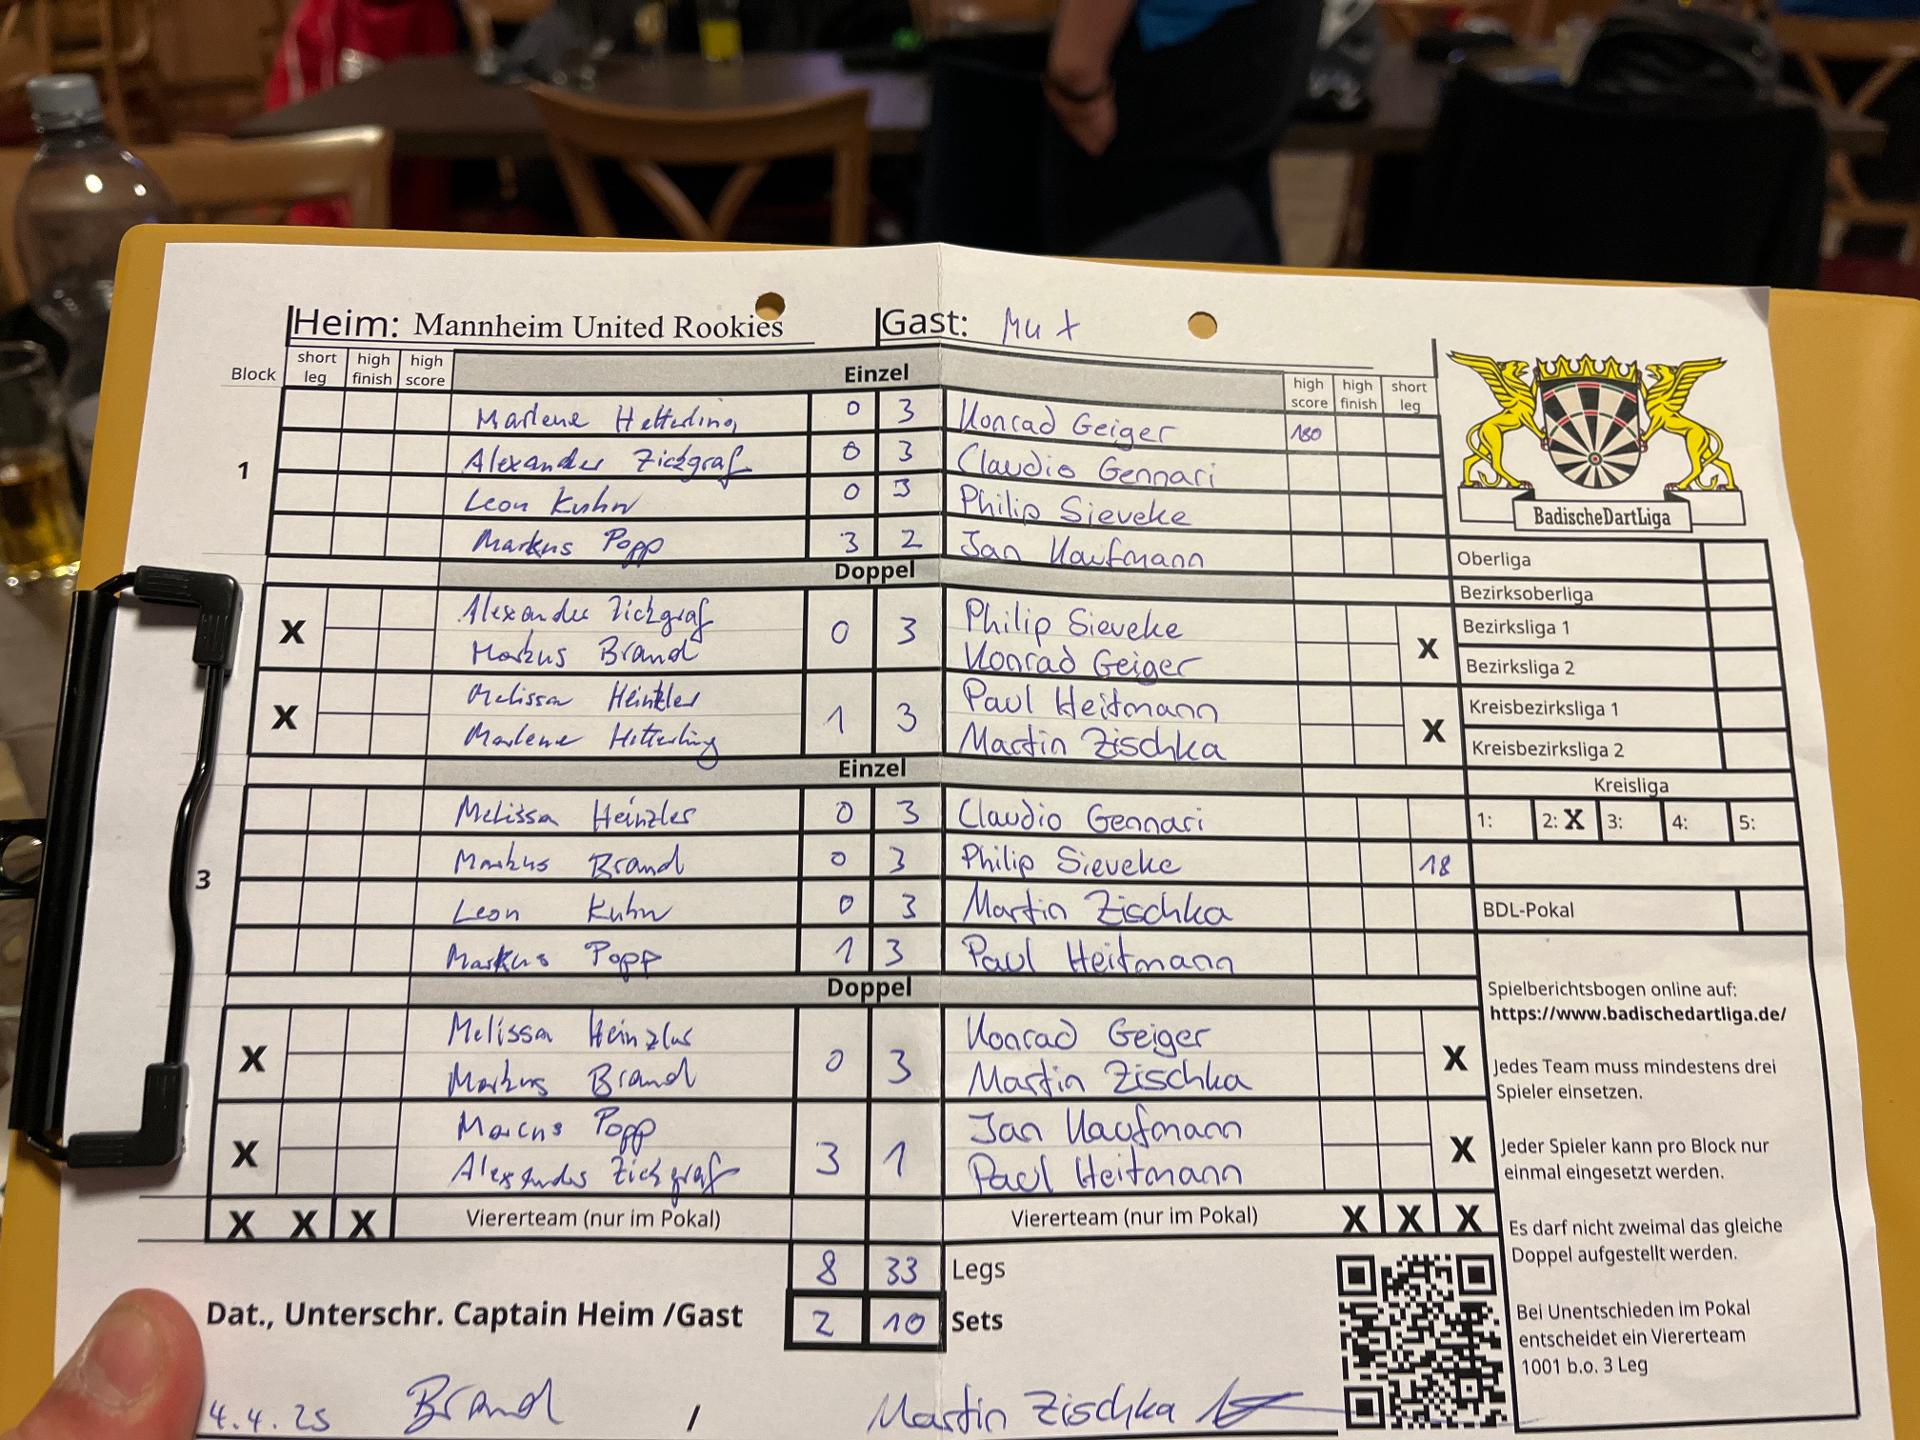 Heim: Mannheim United Rookies Gast: Mu X
Block short leg high finish high score Einzel high score high finish short leg
1
Marlene Hetterling 0 3 Konrad Geiger 180
Alexander Zickgraf 0 3 Claudio Gennari
Leon Kuhn 0 3 Philip Sieveke
Markus Popp 3 2 Jan Kaufmann
Doppel
X Alexander Zickgraf 0 3 Philip Sieveke X
Markus Brand Konrad Geiger
X Melissa Heinzler 1 3 Paul Heitmann X
Marlene Hetterling Martin Zischka
Einzel
3
Melissa Heinzler 0 3 Claudio Gennari
Markus Brand 0 3 Philip Sieveke 18
Leon Kuhn 0 3 Martin Zischka
Markus Popp 1 3 Paul Heitmann
Doppel
X Melissa Heinzler 0 3 Konrad Geiger X
Markus Brand Martin Zischka
X Marcus Popp 3 1 Jan Kaufmann X
Alexander Zickgraf Paul Heitmann
X X X Viererteam (nur im Pokal) Viererteam (nur im Pokal) X X X
8 33 Legs
2 10 Sets
Dat., Unterschr. Captain Heim /Gast
4.4.25 Brand / Martin Zischka
BadischeDartLiga
Oberliga
Bezirksoberliga
Bezirksliga 1
Bezirksliga 2
Kreisbezirksliga 1
Kreisbezirksliga 2
Kreisliga
1: 2: X 3: 4: 5:
BDL-Pokal
Spielberichtsbogen online auf:
https://www.badischedartliga.de/
Jedes Team muss mindestens drei
Spieler einsetzen.
Jeder Spieler kann pro Block nur
einmal eingesetzt werden.
Es darf nicht zweimal das gleiche
Doppel aufgestellt werden.
Bei Unentschieden im Pokal
entscheidet ein Viererteam
1001 b.o. 3 Leg